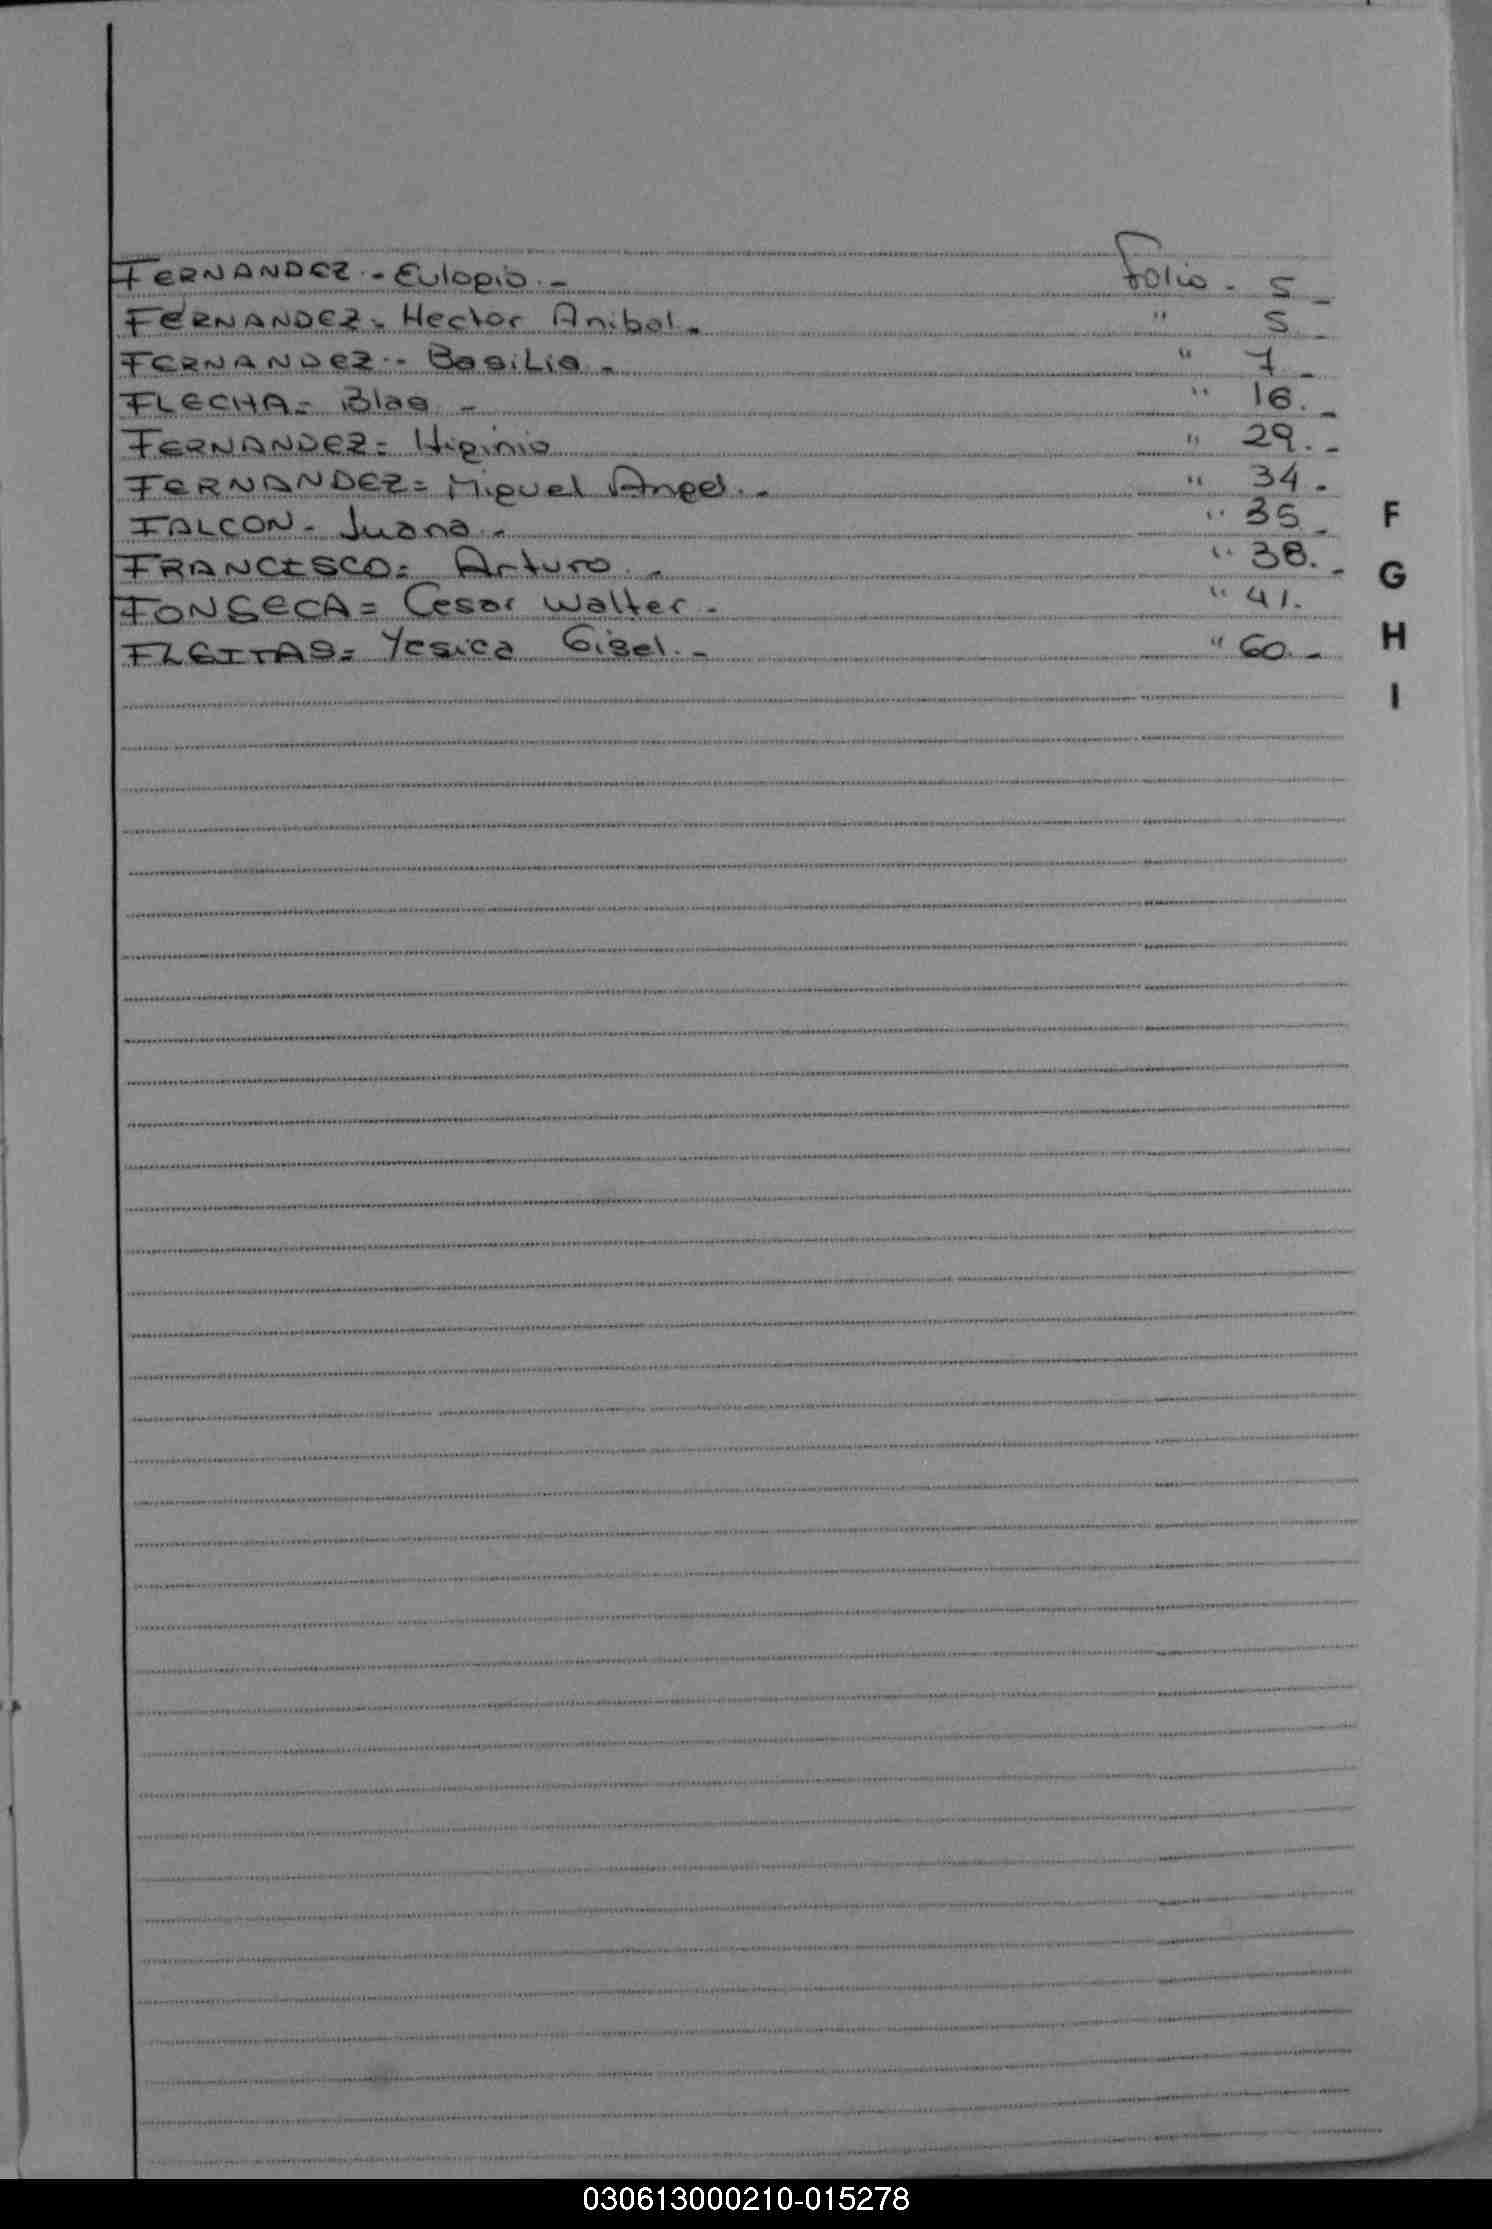 FERNANDEZ - Eulogio. - Folio. 5 -
FERNANDEZ. Hector Anibal. " 5 -
FERNANDEZ - Basilia - " 7 -
FLECHA - Blas - " 16. -
FERNANDEZ = Higinio " 29. -
FERNANDEZ = Miguel Angel. - " 34 -
FALCON - Juana - " 35 -
FRANCISCO = Arturo - " 38. -
FONSECA = Cesar Walter - " 41.
FLEITAS = Yesica Gisel. - " 60. -
F
G
H
I
030613000210-015278